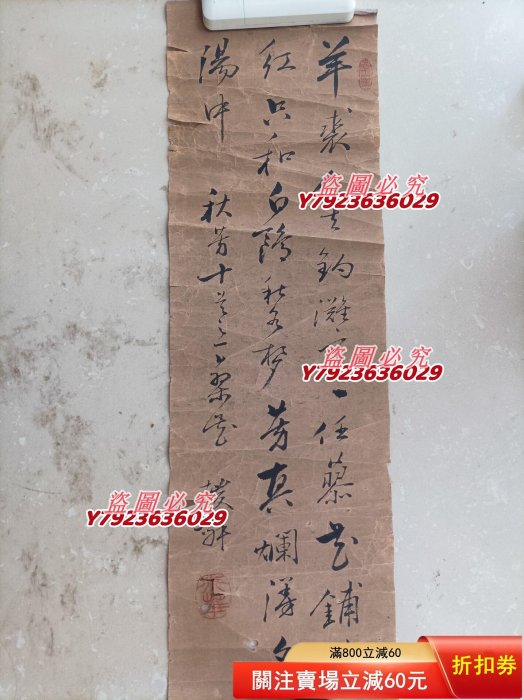 羊裘
釣灘
一任蓼花鋪
紅只和白鷗
夢芳真爛漫夕
陽中
秋芳十首之一蓼花
盜圖必究
Y7923636029
盜圖必究
Y7923636029
盜圖必究
Y7923636029
滿800立減60
關注賣場立減60元
折扣券